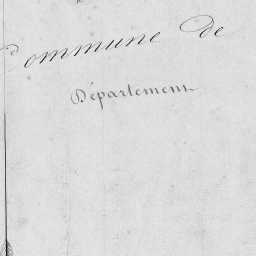 Commune De
Département